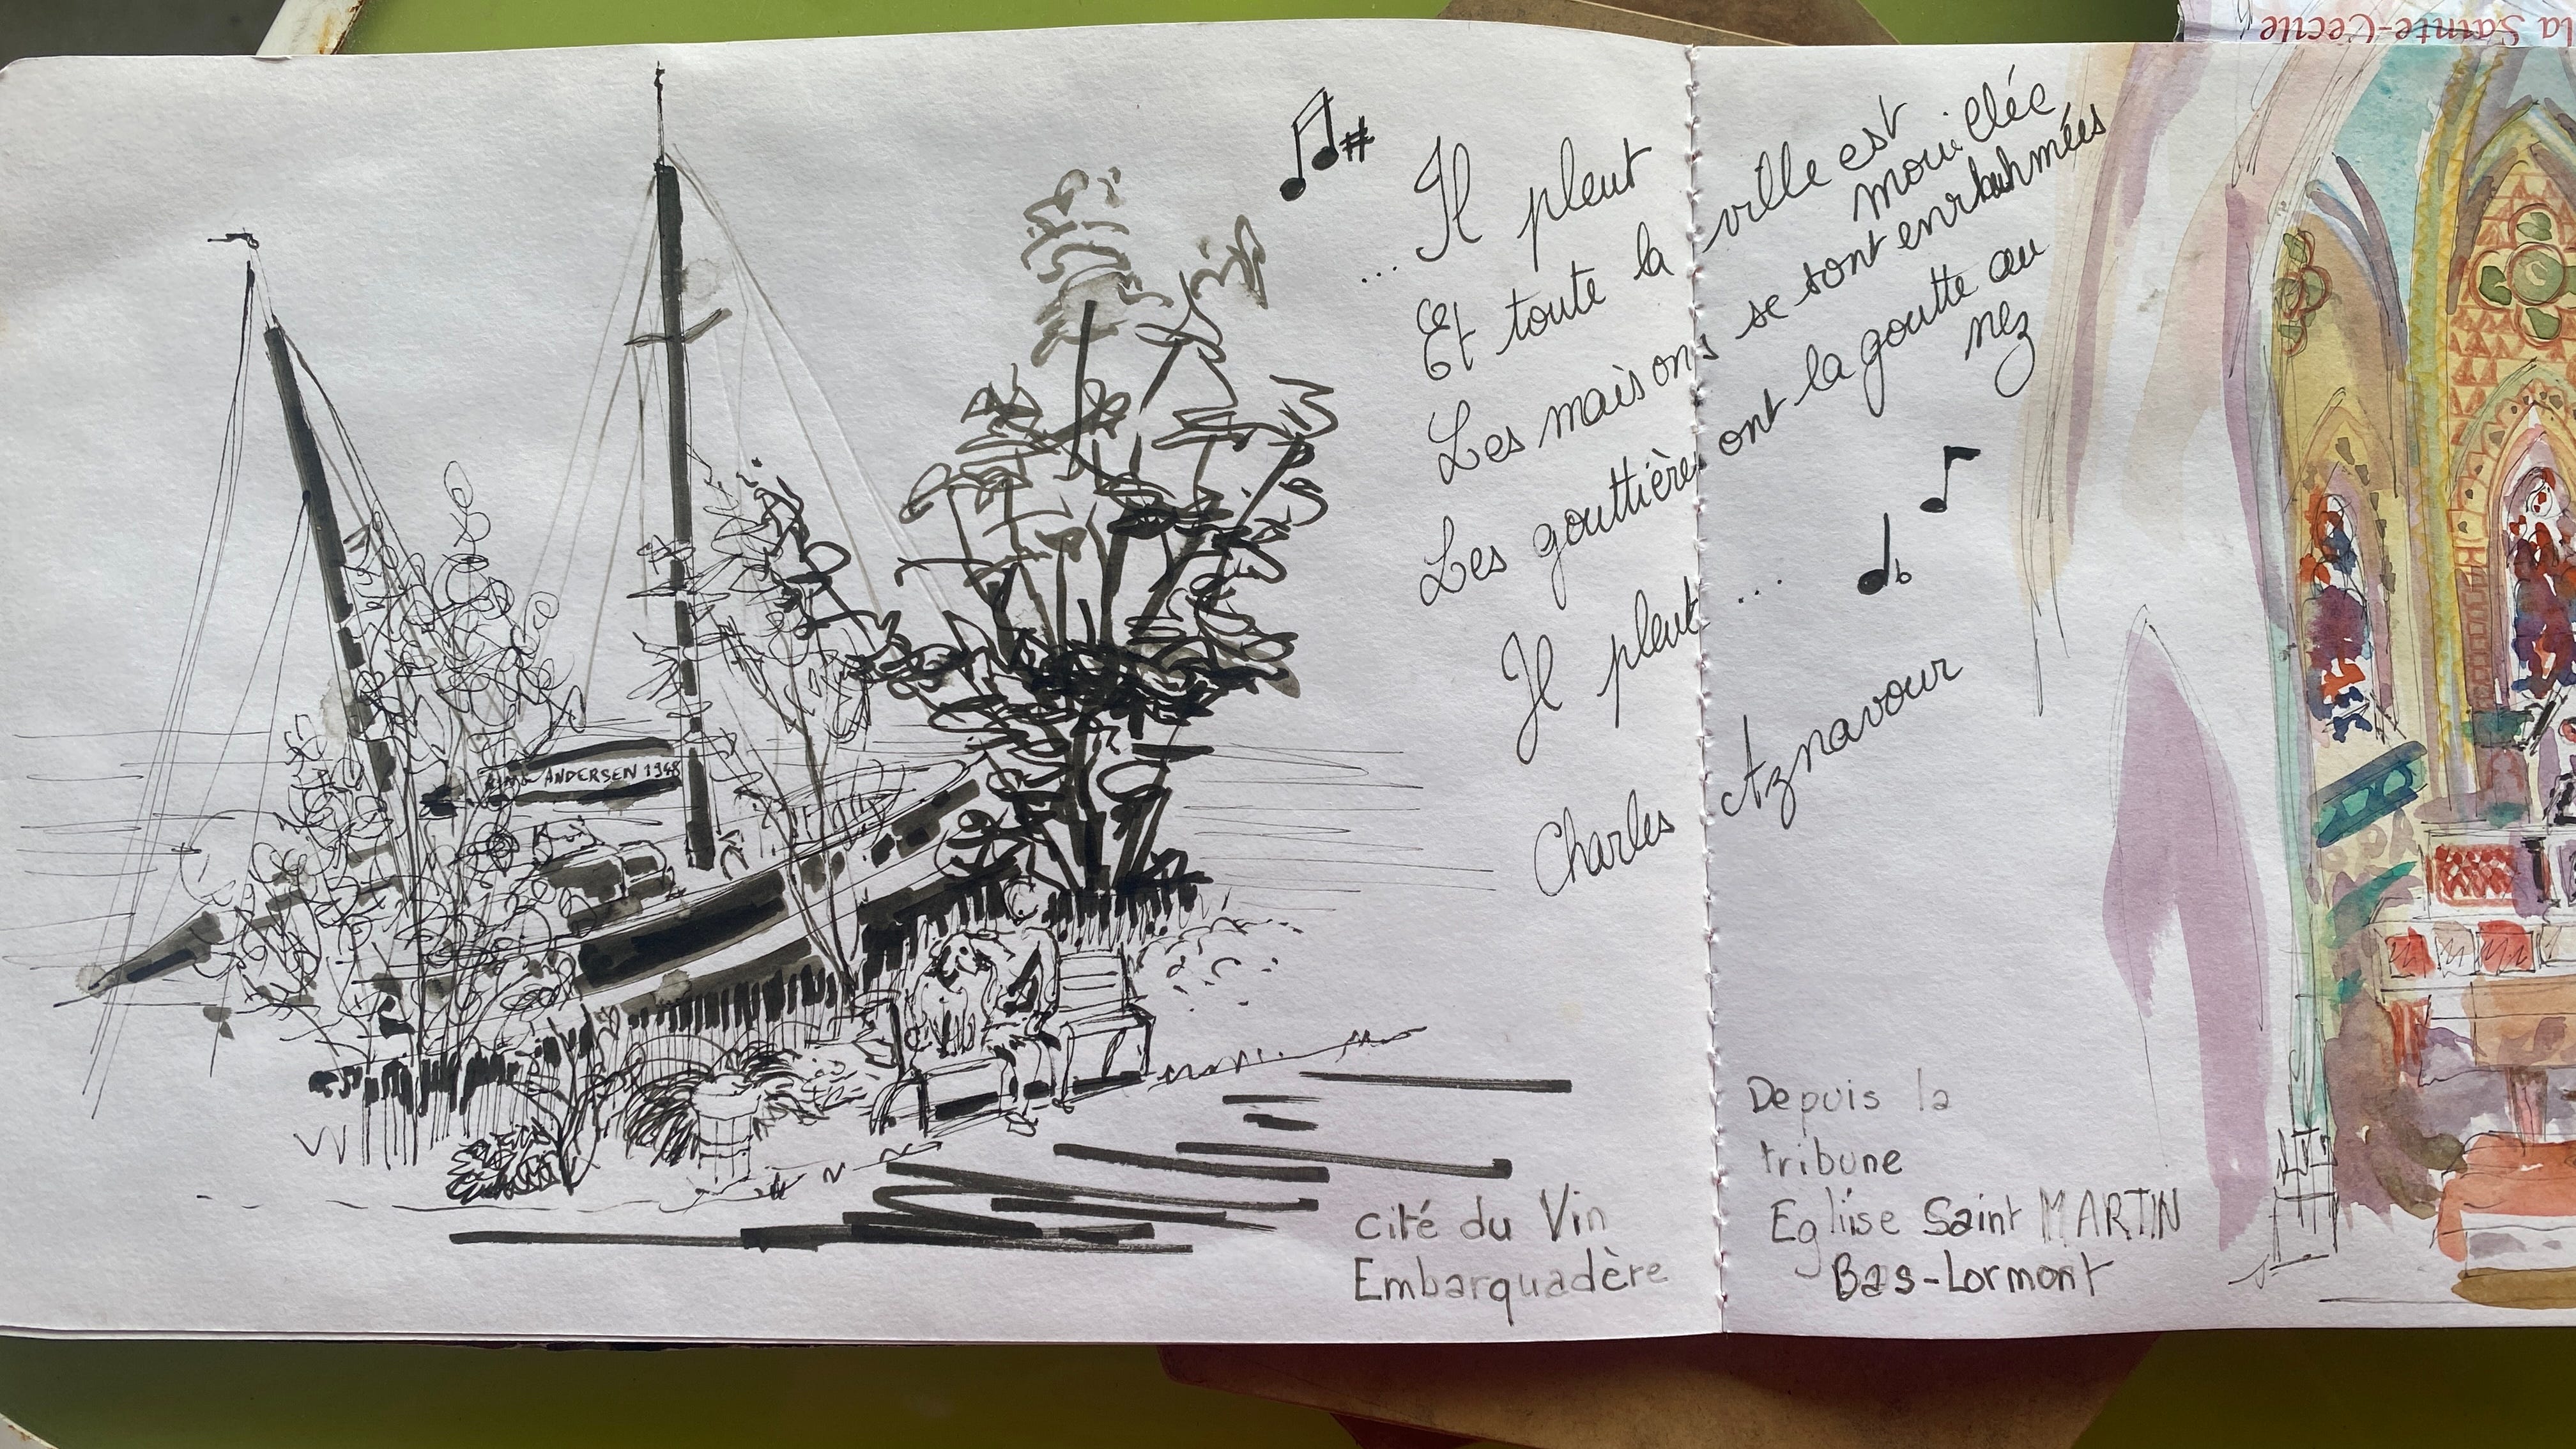 la Sainte-Cécile
... Il pleut
Et toute la ville est
mouillée
Les maisons se sont enrhumées
Les gouttières ont la goutte au
nez
Il pleut ...
Charles Aznavour
ANDERSEN 1948
Depuis la
tribune
Eglise Saint MARTIN
Bas-Lormont
cité du Vin
Embarquadère